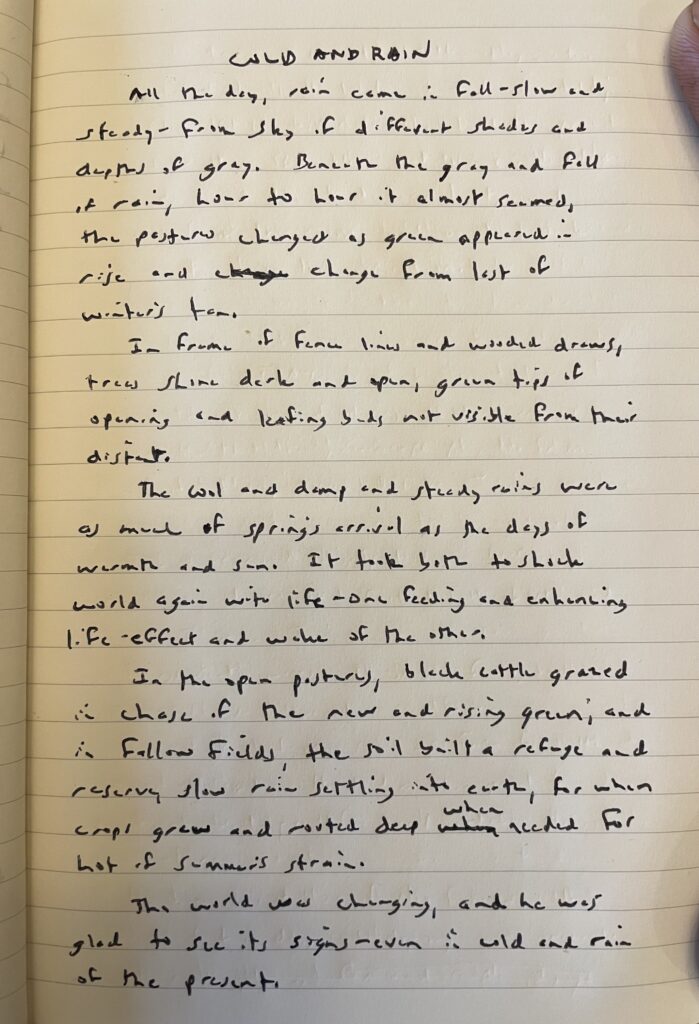 COLD AND RAIN
All the day, rain came in fall-slow and
steady-from sky of different shades and
depths of gray. Beneath the gray and fall
of rain, hour to hour it almost seemed,
the pastures changed as green appeared in
rise and change change from last of
winter's tan.
In frame of fence lines and wooded draws,
trees shine dark and open, green tips of
opening and leafing buds not visible from their
distant.
The cool and damp and steady rains were
as much of spring's arrival as the days of
warmth and sun. It took both to shock
world again with life-one feeding and enhancing
life-effect and wake of the other.
In the open pastures, black cattle grazed
in chase of the new and rising green, and
in fallow fields, the soil built a refuge and
reserve, slow rain settling into earth, for when
crops grew and rooted deep when needed for
hot of summer's strain.
The world was changing, and he was
glad to see its signs-even in cold and rain
of the present.